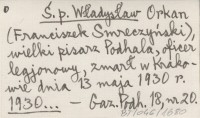 Ś. p. Władysław Orkan
(Franciszek Smreczyński),
wielki pisarz Podhala, oficer
legjonowy, zmarł w Krako-
wie dnia 13 maja 1930 r.
1930... — Gaz. Podh. 18, nr. 20.